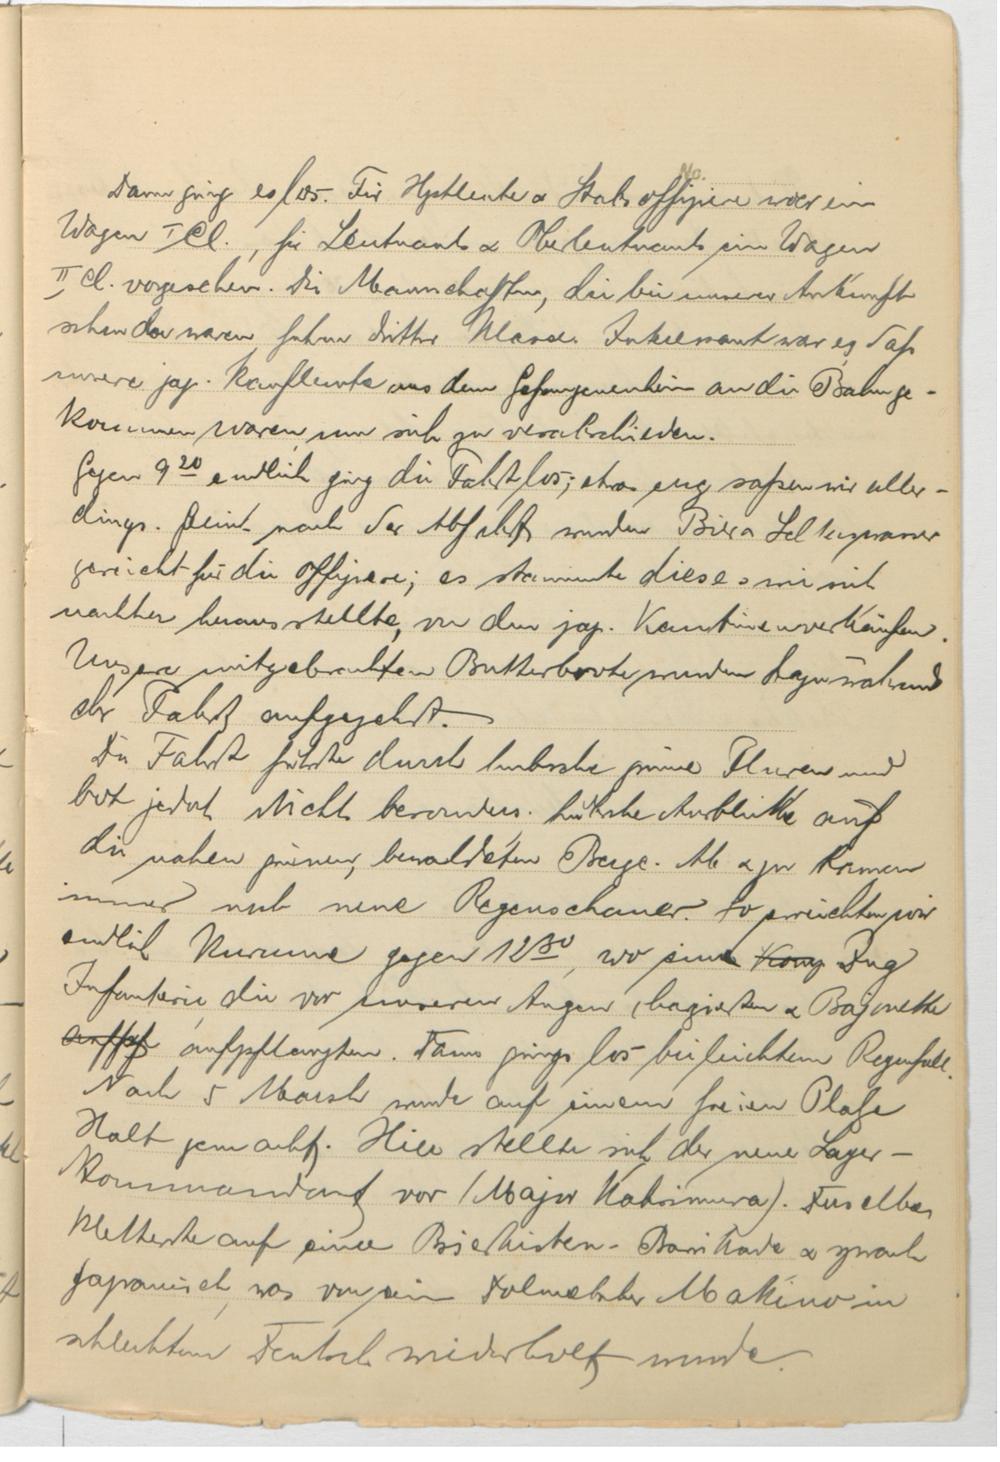 No.
Dann ging es los. Für Hptleute & Stabsoffiziere war ein
Wagen I Cl., für Leutnants & Oberleutnants ein Wagen
II Cl. vorgesehen. Die Mannschaften, die bei unserer Ankunft
schon da waren, fuhren dritter Klasse. Interessant war es, daß
unsere jap. Kaufleute aus dem Gefangenenheim an die Bahn ge-
kommen waren, um sich zu verabschieden.
Gegen 9 20 endlich ging die Fahrt los; etwas eng saßen wir aller-
dings. Gleich nach der Abfahrt wurden Bier & Selterwasser
gereicht für die Offiziere; es stammte dieses wie sich
nachher herausstellte, von den jap. Kantinenverkäufern.
Unsere mitgebrachten Butterbrote wurden während
der Fahrt aufgezehrt.
Die Fahrt führte durch hübsche grüne Fluren und
bot jedoch nicht besonders hübsche Ausblicke auf
die nahen grünen, bewaldeten Berge. Ab & zu kamen
immer noch neue Regenschauer. So erreichten wir
endlich Kurume gegen 12 30, wo eine Komp Zug
Infanterie, die vor unseren Augen chargierten & Bajonette
aufpflanzten. Dann gings los bei leichtem Regenfall.
Nach 5 Marsch wurde auf einem freien Platze
Halt gemacht. Hier stellte sich der neue Lager-
Kommandant vor (Major Kakimura). Derselbe
kletterte auf eine Bierkisten-Barrikade & sprach
Japanisch, was von ein Dolmetscher Makino in
schlechtem Deutsch wiederholt wurde.